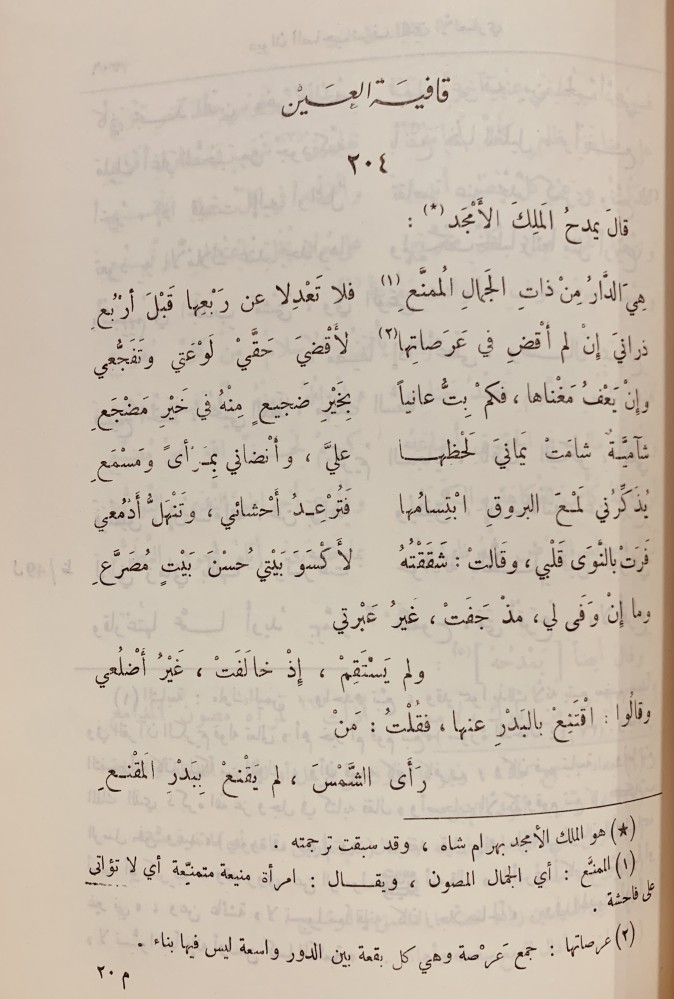 قافية العين
٢٠٤
قالَ يمدحُ المَلِكَ الأَمْجَد (*) :
هِيَ الدَّارُ مِنْ ذاتِ الجَمالِ المُمنَّعِ (١) فلا تَعْدِلا عن رَبْعِها قَبْلَ أَرْبُعِ
ذرانيَ إنْ لم أقْضِ في عَرَصاتِها (٢) لأَقْضيَ حَقَّيْ لَوْعَتي وتَفَجُّعي
وإنْ يَعْفُ مَغْناها ، فكمْ بِتُّ عانياً بِخَيْرِ ضَجيعٍ مِنْهُ في خَيْرِ مَضْجَعِ
شآميَّةٌ شامَتْ يَمانيَ لَحْظِهـا عليَّ ، وأَنْضاني بِمَـرْأىً ومَسْمَعِ
يُذَكِّرُني لَمْعَ البروقِ ابْتِسامُها فَتُرْعِـدُ أَحْشائي ، وتَنْهَلُّ أَدْمُعي
فَرَتْ بالنَّوَى قَلْبي ، وقَالتْ : شَقَقْتُهُ لأَكْسُوَ بَيْتي حُسْنَ بَيْتٍ مُصَرَّعِ
وما إنْ وَفَى لي ، مذْ جَفَتْ ، غيرُ عَبْرتي
ولم يَسْتَقِمْ ، إذْ خالَفَتْ ، غَيْرُ أَضْلُعي
وقالُوا : اقْتَنِعْ بالبَدْرِ عنها ، فقُلْتُ : مَنْ
رَأَى الشَّمْسَ ، لم يَقْنَعْ بِبَدْرِ المُقَنـعِ
(*) هو الملك الأمجد بهرام شاه ، وقد سبقت ترجمته .
(١) الممنَّع : أي الجمال المصون ، ويقـال : امرأة منيعة متمنيّعة أي لا تؤاتى
على فاحشة .
(٢) عرصاتها : جمع عَرْصة وهي كل بقعة بين الدور واسعة ليس فيها بناء .
م ٢٠